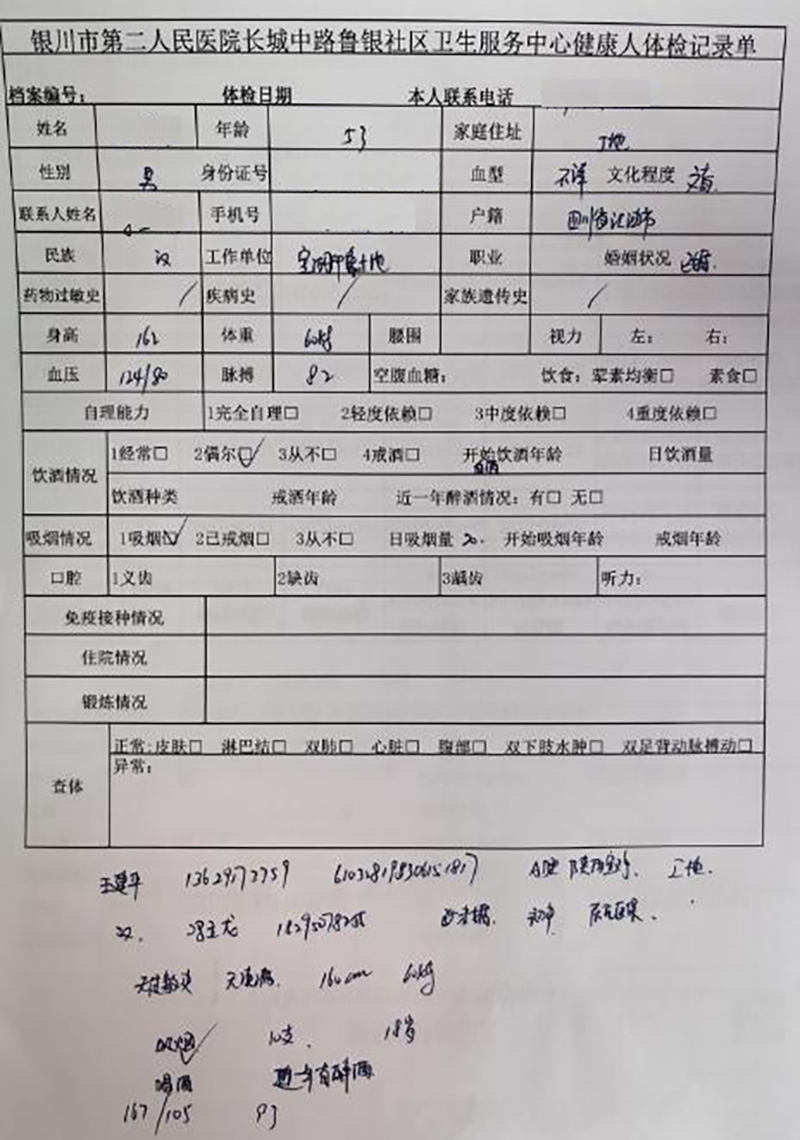 银川市第二人民医院长城中路鲁银社区卫生服务中心健康人体检记录单
档案编号： 体检日期 本人联系电话
姓名 年龄 53 家庭住址 工地
性别 男 身份证号 血型 不详 文化程度 文盲
联系人姓名 手机号 户籍 四川省
民族 汉 工作单位 职业 婚姻状况 已婚
药物过敏史 / 疾病史 / 家族遗传史 /
身高 162 体重 60kg 腰围 视力 左： 右：
血压 124/80 脉搏 82 空腹血糖： 饮食：荤素均衡□ 素食□
自理能力 1完全自理□ 2轻度依赖□ 3中度依赖□ 4重度依赖□
饮酒情况 1经常□ 2偶尔☑ 3从不□ 4戒酒□ 开始饮酒年龄 日饮酒量
饮酒种类 戒酒年龄 近一年醉酒情况：有□ 无□
吸烟情况 1吸烟☑ 2已戒烟□ 3从不□ 日吸烟量 20. 开始吸烟年龄 戒烟年龄
口腔 1义齿 2缺齿 3龋齿 听力：
免疫接种情况
住院情况
锻炼情况
查体 正常：皮肤□ 淋巴结□ 双肺□ 心脏□ 腹部□ 双下肢水肿□ 双足背动脉搏动□
异常：
A型 工地.
汉.
160cm 60kg
吸烟✓ 10支. 18岁
喝酒 近一年有醉酒
167/105 93